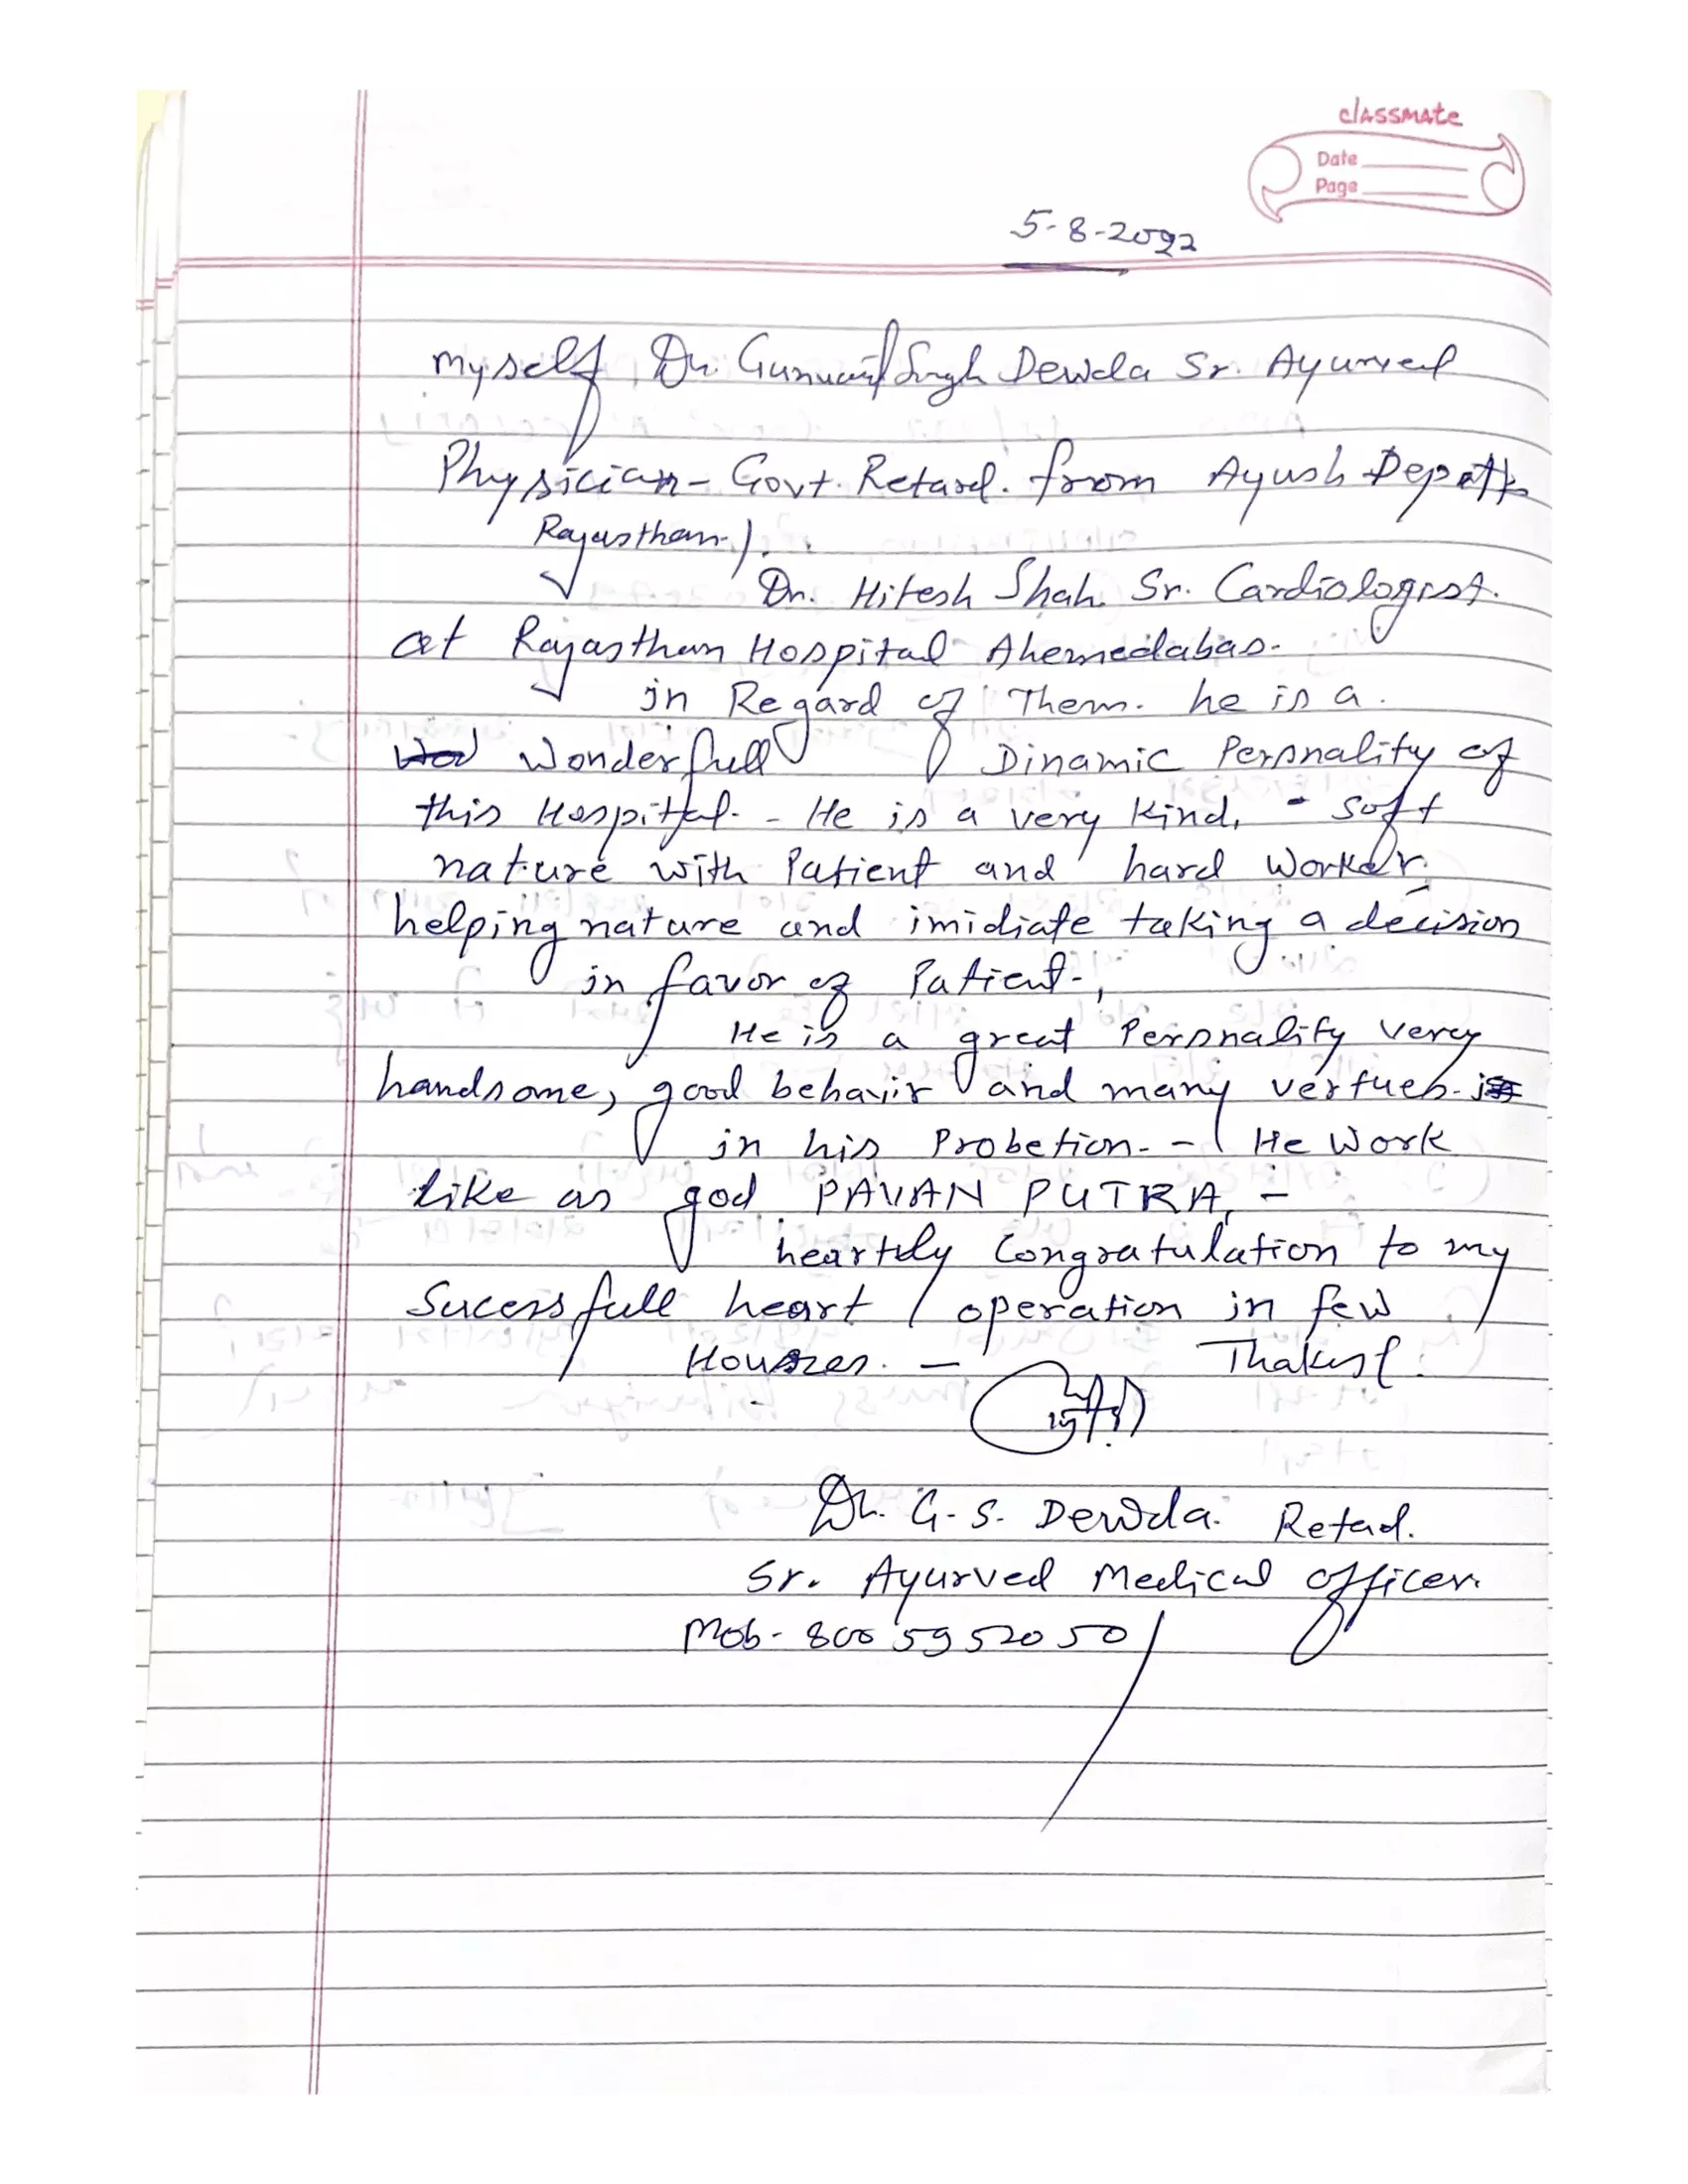 classmate
Date
Page
5-8-2022
myself Dr. Gunwant Singh Dewda Sr. Ayurved
Physician - Govt. Retard. from Ayush Depatt
Rajasthan).
Dr. Hitesh Shah. Sr. Cardiologist.
at Rajasthan Hospital Ahemedabad.
in Regard of Them. he is a.
Wonderfull Dinamic Personality of
this Hospital. - He is a very kind, - soft
nature with Patient and hard worker.
helping nature and imidiate taking a decision
in favor of Patient-,
He is a great Personality very
handsome, good behavir and many vertues.
in his Probetion. - He work
like as god PAVAN PUTRA, -
heartely Congratulation to my
Sucessfull heart operation in few
Houres. -
Dr. G. S. Dewda. Retad.
Sr. Ayurved Medical officer.
Mob- 8005952050